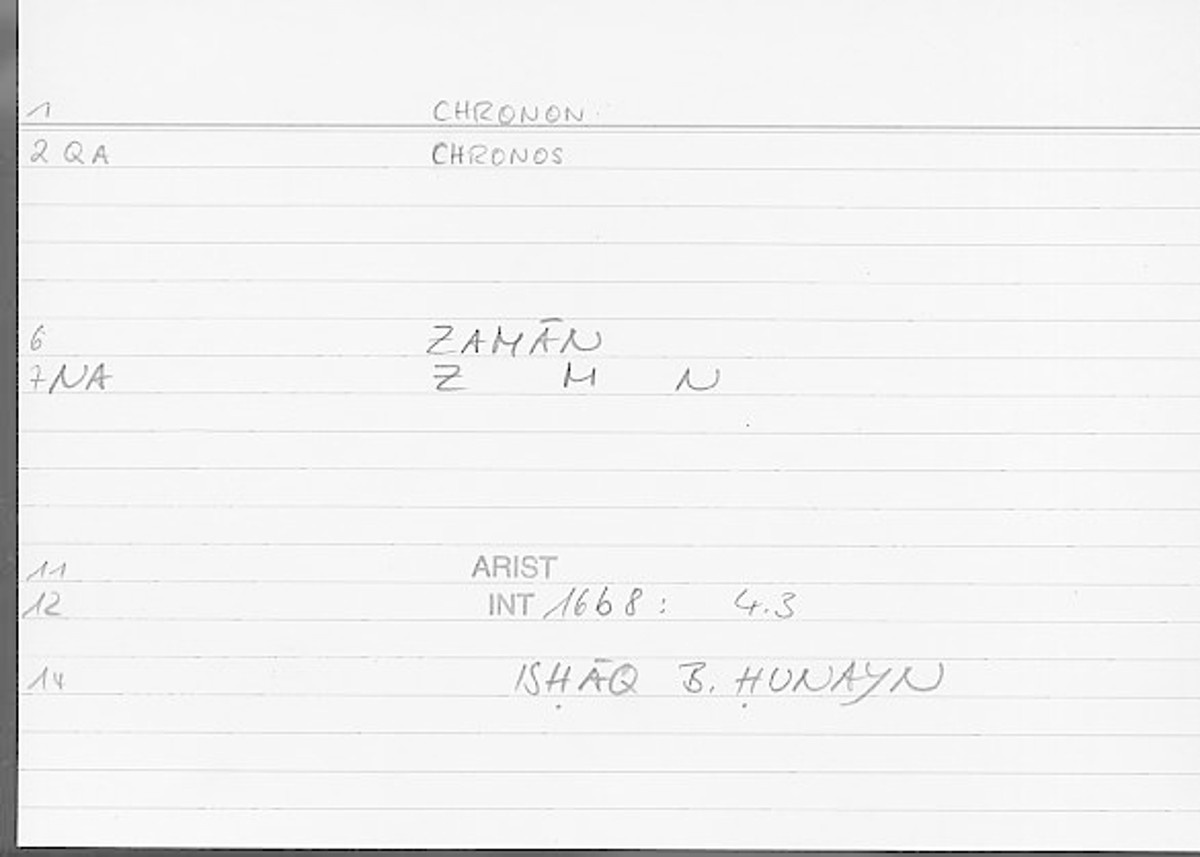 1 CHRONON
2 QA CHRONOS
6 ZAMĀN
7 NA Z M N
11 ARIST
12 INT 16b8: 4.3
14 ISḤĀQ B. ḤUNAYN